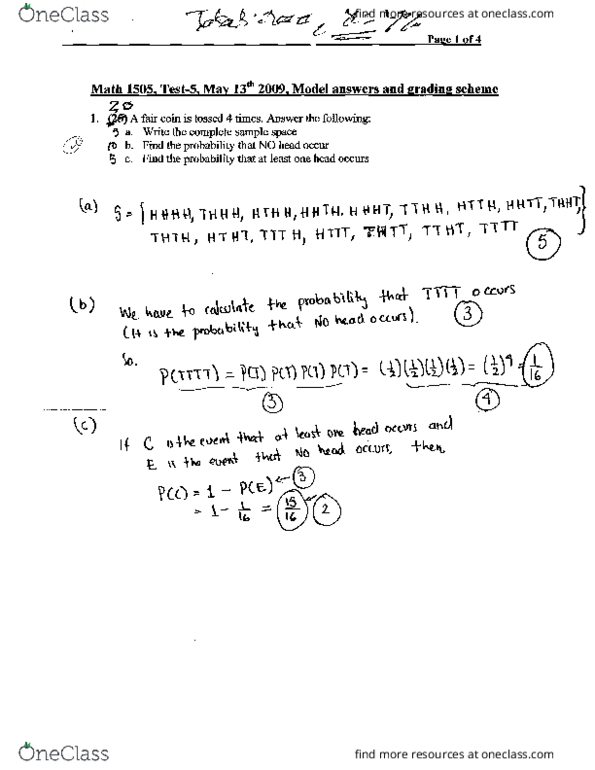 OneClass
find more resources at oneclass.com
Page 1 of 4
Math 1505, Test-5, May 13th 2009, Model answers and grading scheme
20
1. (20) A fair coin is tossed 4 times. Answer the following:
5 a. Write the complete sample space
10 b. Find the probability that NO head occur
5 c. Find the probability that at least one head occurs
(a) S = { HHHH, THHH, HTHH, HHTH, HHHT, TTHH, HTTH, HHTT, THHT,
THTH, HTHT, TTTH, HTTT, THTT, TTHT, TTTT }
5
(b) We have to calculate the probability that TTTT occurs
(It is the probability that NO head occurs). 3
So,
P(TTTT) = P(T) P(T) P(T) P(T) = (1/2)(1/2)(1/2)(1/2) = (1/2)^4 = 1/16
3 4
(c) If C is the event that at least one head occurs and
E is the event that NO head occurs, then
P(C) = 1 - P(E) 3
= 1 - 1/16 = 15/16 2
OneClass
find more resources at oneclass.com